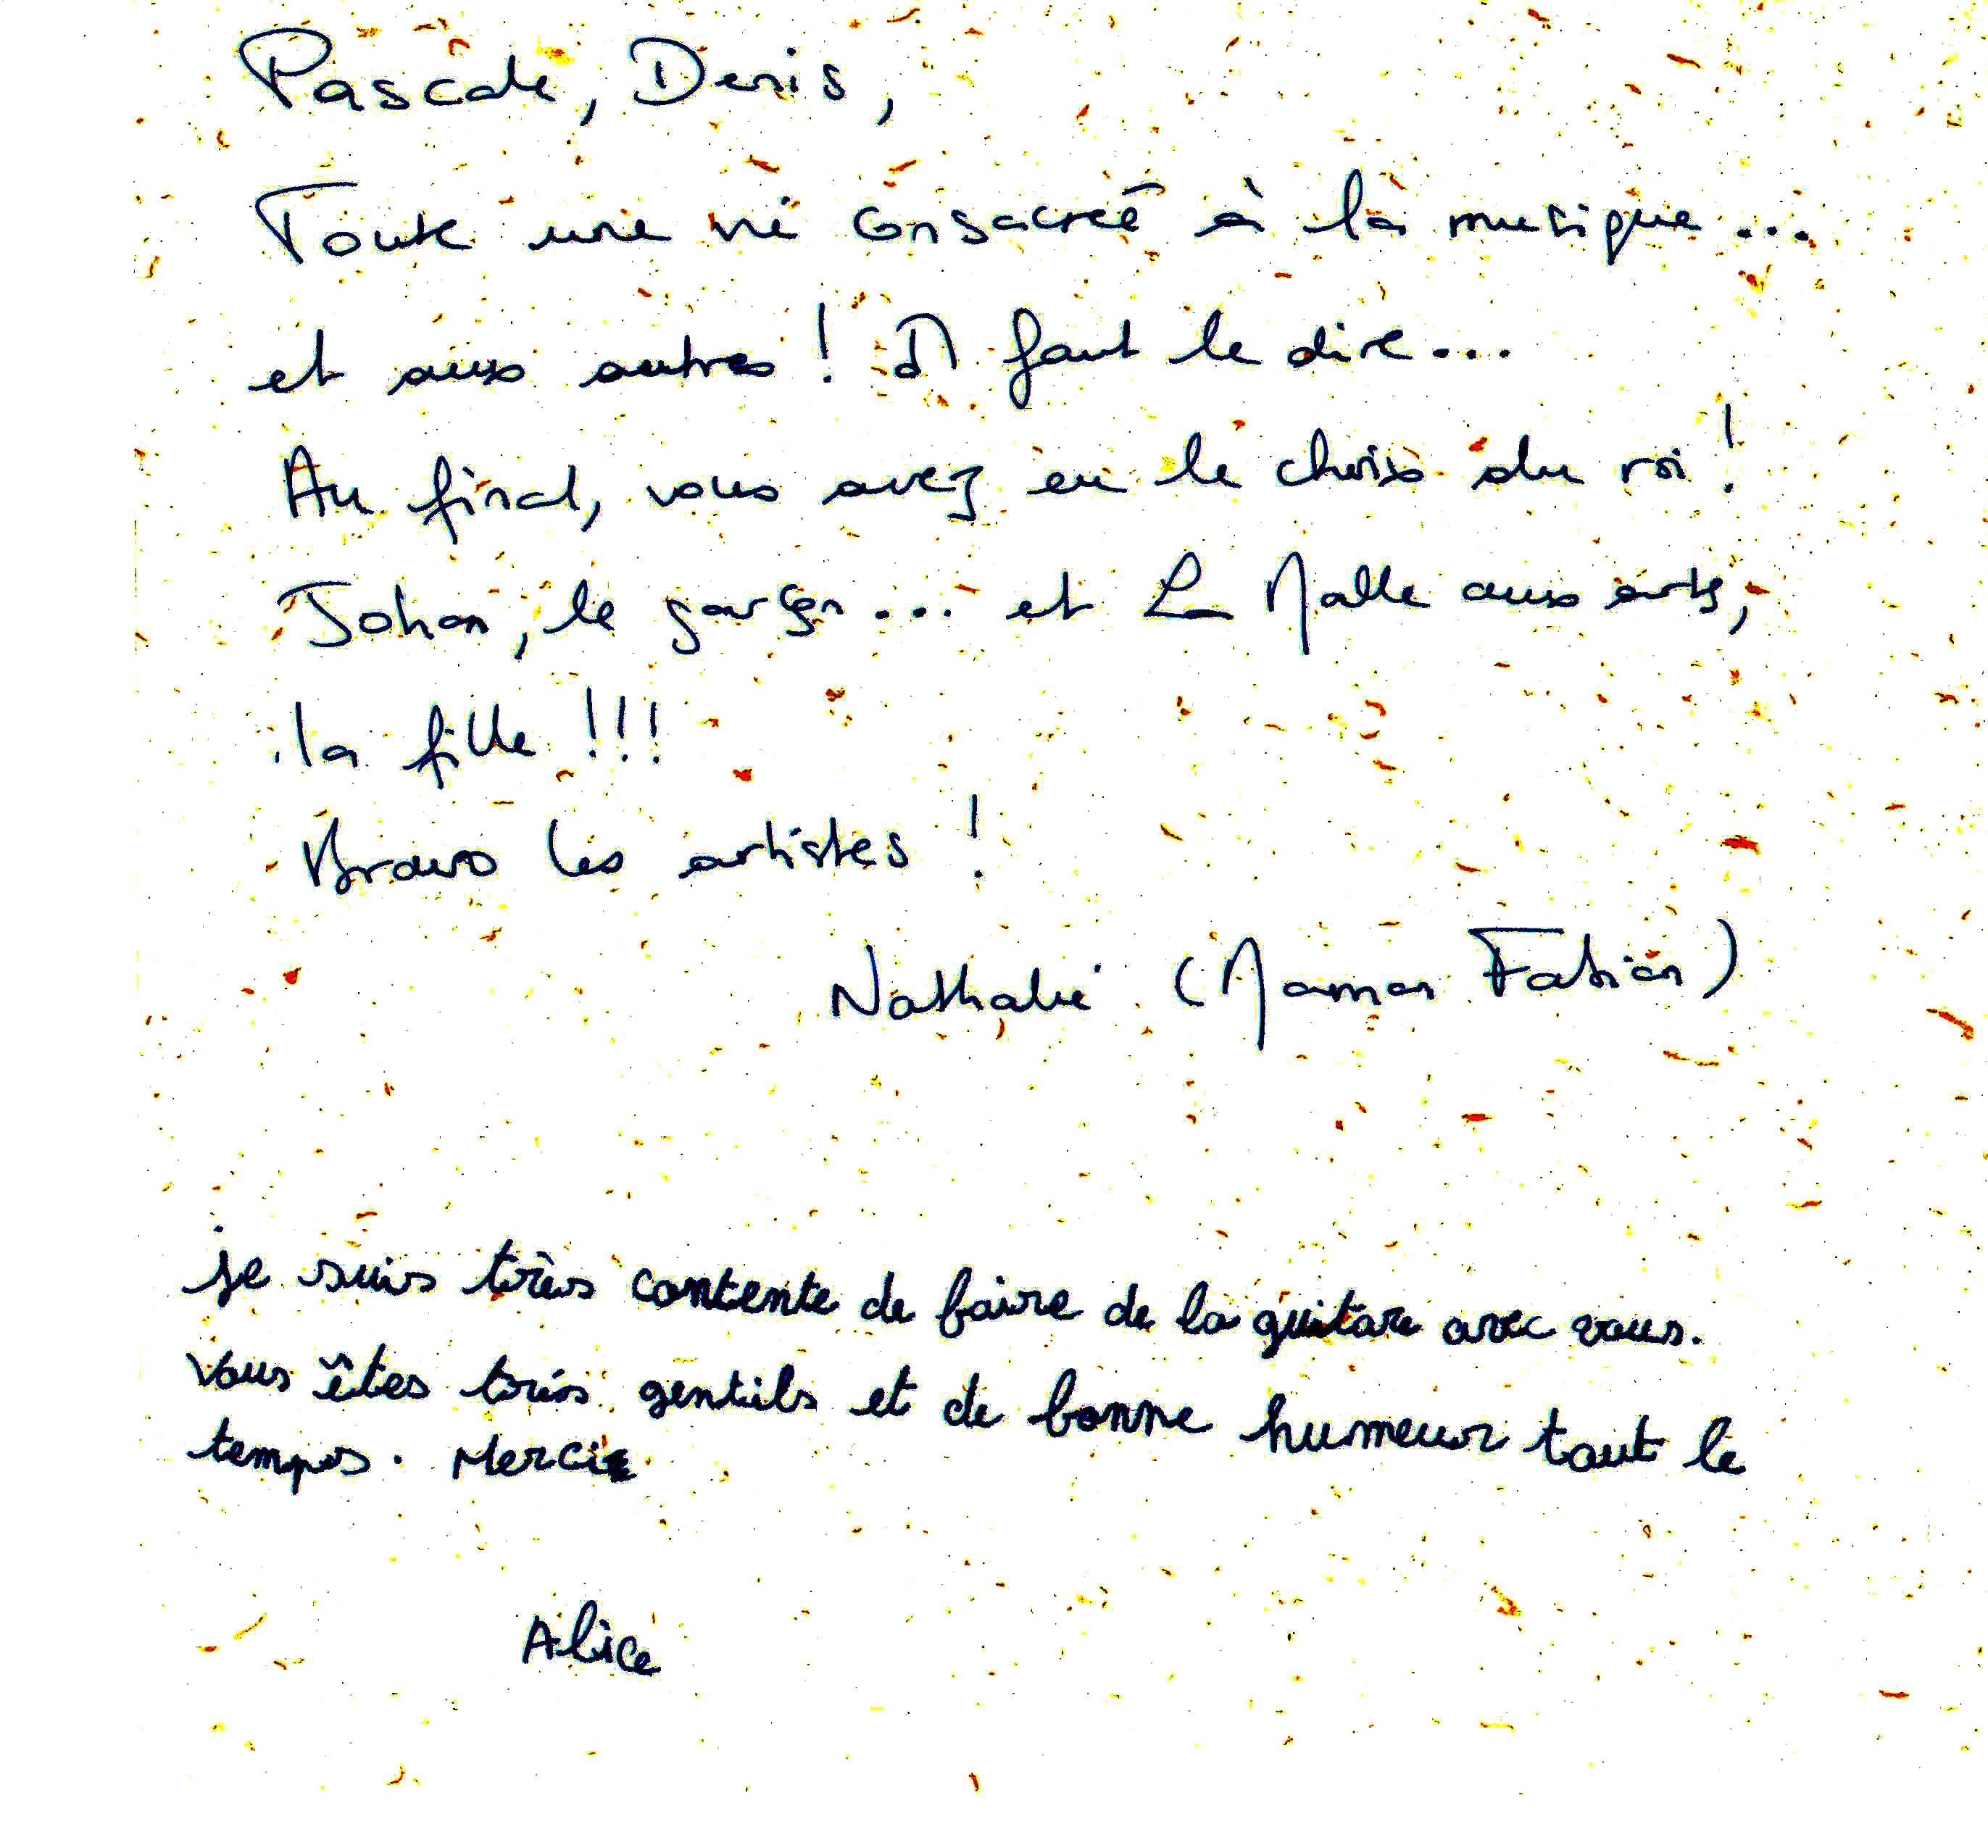 Pascale, Denis,
Toute une vie consacrée à la musique...
et aux autres ! Il faut le dire...
Au final, vous avez eu le choix du roi !
Johan, le garçon... et La Malle aux arts,
la fille !!!
Bravo les artistes !
Nathalie (Maman Fabian)
je suis très contente de faire de la guitare avec vous.
Vous êtes très gentils et de bonne humeur tout le
temps. Merci
Alice